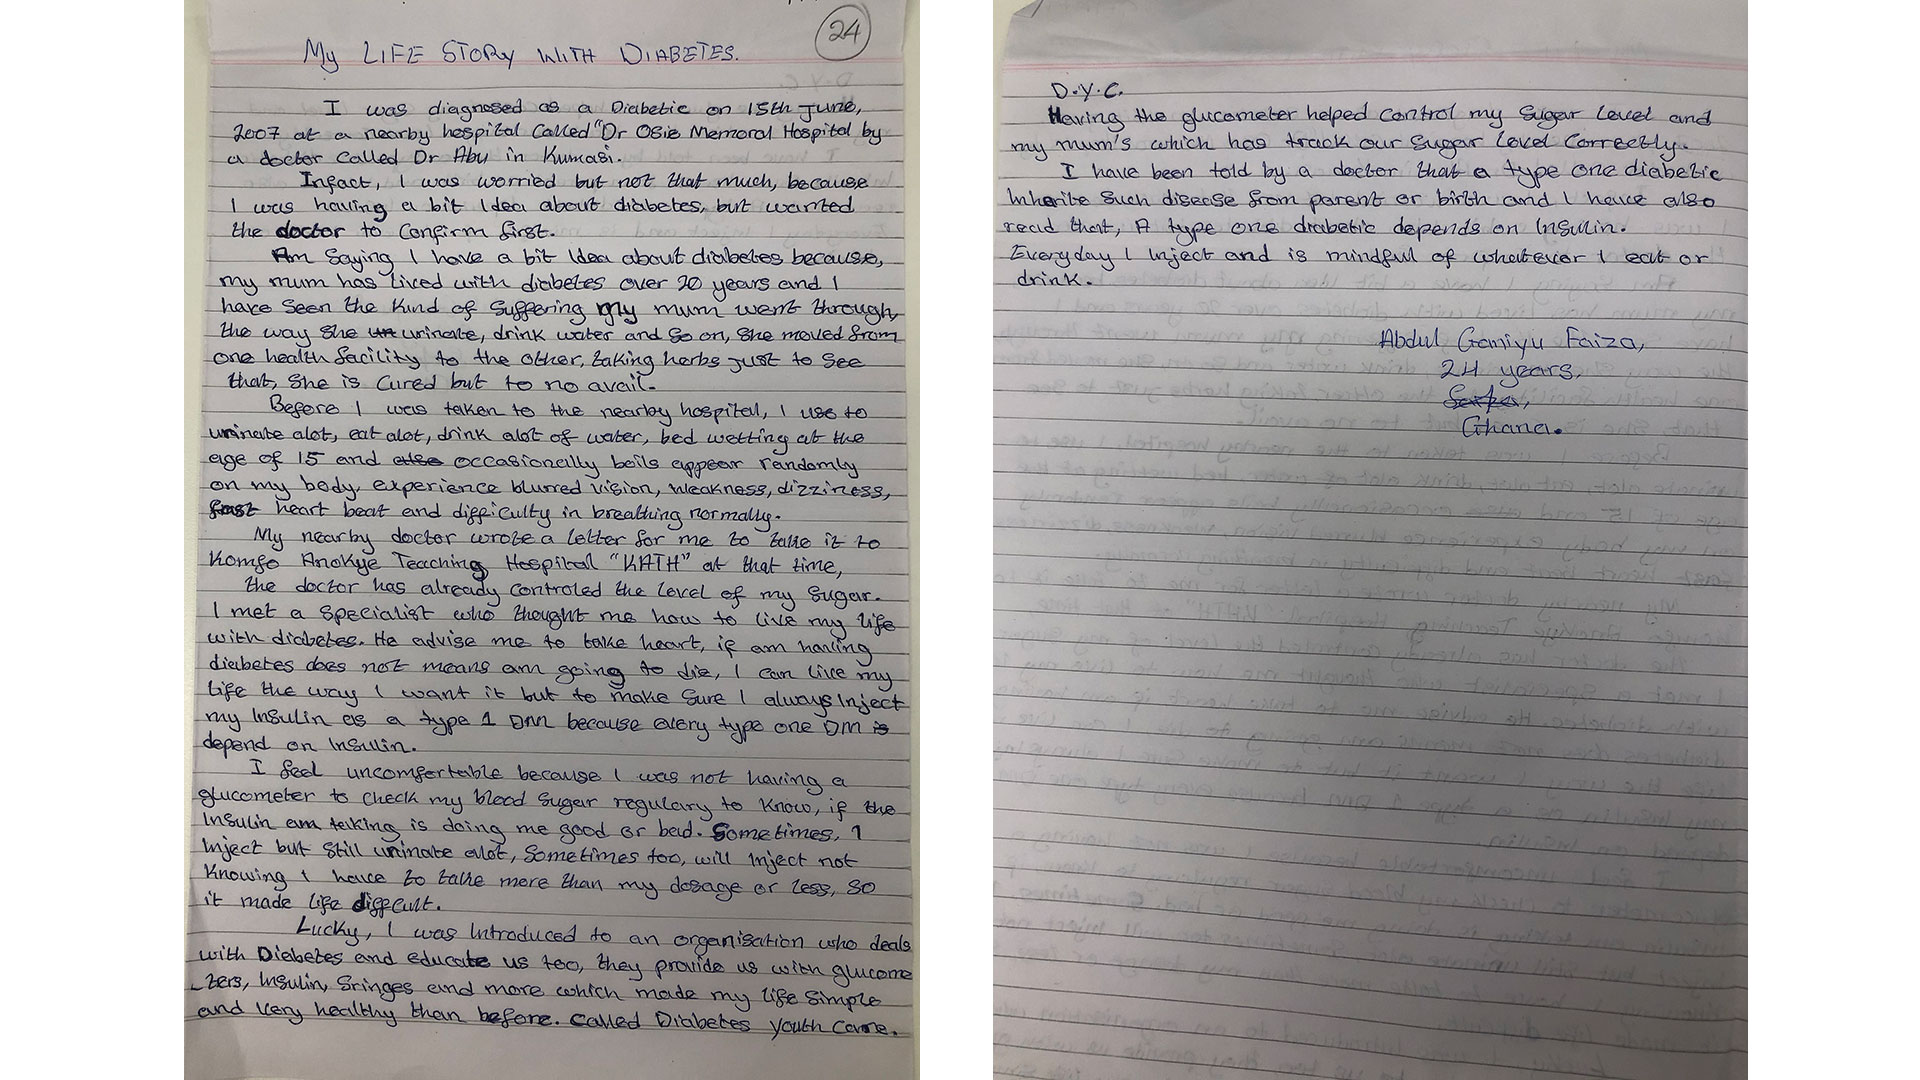 24
My LIFE STORY WITH DIABETES.
I was diagnosed as a Diabetic on 15th June,
2007 at a nearby hospital called "Dr Osie Memoral Hospital by
a doctor called Dr Abu in Kumasi.
Infact, I was worried but not that much, because
I was having a bit Idea about diabetes, but wanted
the doctor to Confirm first.
Am Saying I have a bit Idea about diabetes because,
my mum has lived with diabetes over 20 years and I
have seen the kind of suffering my mum went through,
the way she urinate, drink water and so on, she moved from
one health facility to the other, taking herbs just to see
that, She is cured but to no avail.
Before I was taken to the nearby hospital, I use to
urninate alot, eat alot, drink alot of water, bed wetting at the
age of 15 and occasionally boils appear randomly
on my body, experience blurred vision, weakness, dizziness,
fast heart beat and difficulty in breathing normally.
My nearby doctor wrote a letter for me to take it to
Komfo Anokye Teaching Hospital "KATH" at that time,
the doctor has already controled the level of my sugar.
I met a specialist who thought me how to live my life
with diabetes. He advise me to take heart, if am having
diabetes does not means am going to die, I can live my
life the way I want it but to make sure I always Inject
my Insulin as a type 1 Dm because every type one DM is
depend on Insulin.
I feel uncomfortable because I was not having a
glucometer to check my blood sugar regulary to know, if the
Insulin am taking is doing me good or bad. Sometimes, I
Inject but still urninate alot, Sometimes too, will Inject not
knowing I have to take more than my dosage or less, so
it made life difficult.
Lucky, I was Introduced to an organisation who deals
with Diabetes and educate us too, they provide us with glucome
_ters, Insulin, Sringes and more which made my life simple
and very healthy than before. Called Diabetes youth Care.
D.Y.C.
Having the glucometer helped control my sugar level and
my mum's which has track our sugar level correctly.
I have been told by a doctor that a type one diabetic
Inherite such disease from parent or birth and I have also
read that, A type one diabetic depends on Insulin.
Everyday I Inject and is mindful of whatever I eat or
drink.
Abdul Ganiyu Faiza,
24 years,
Ghana.